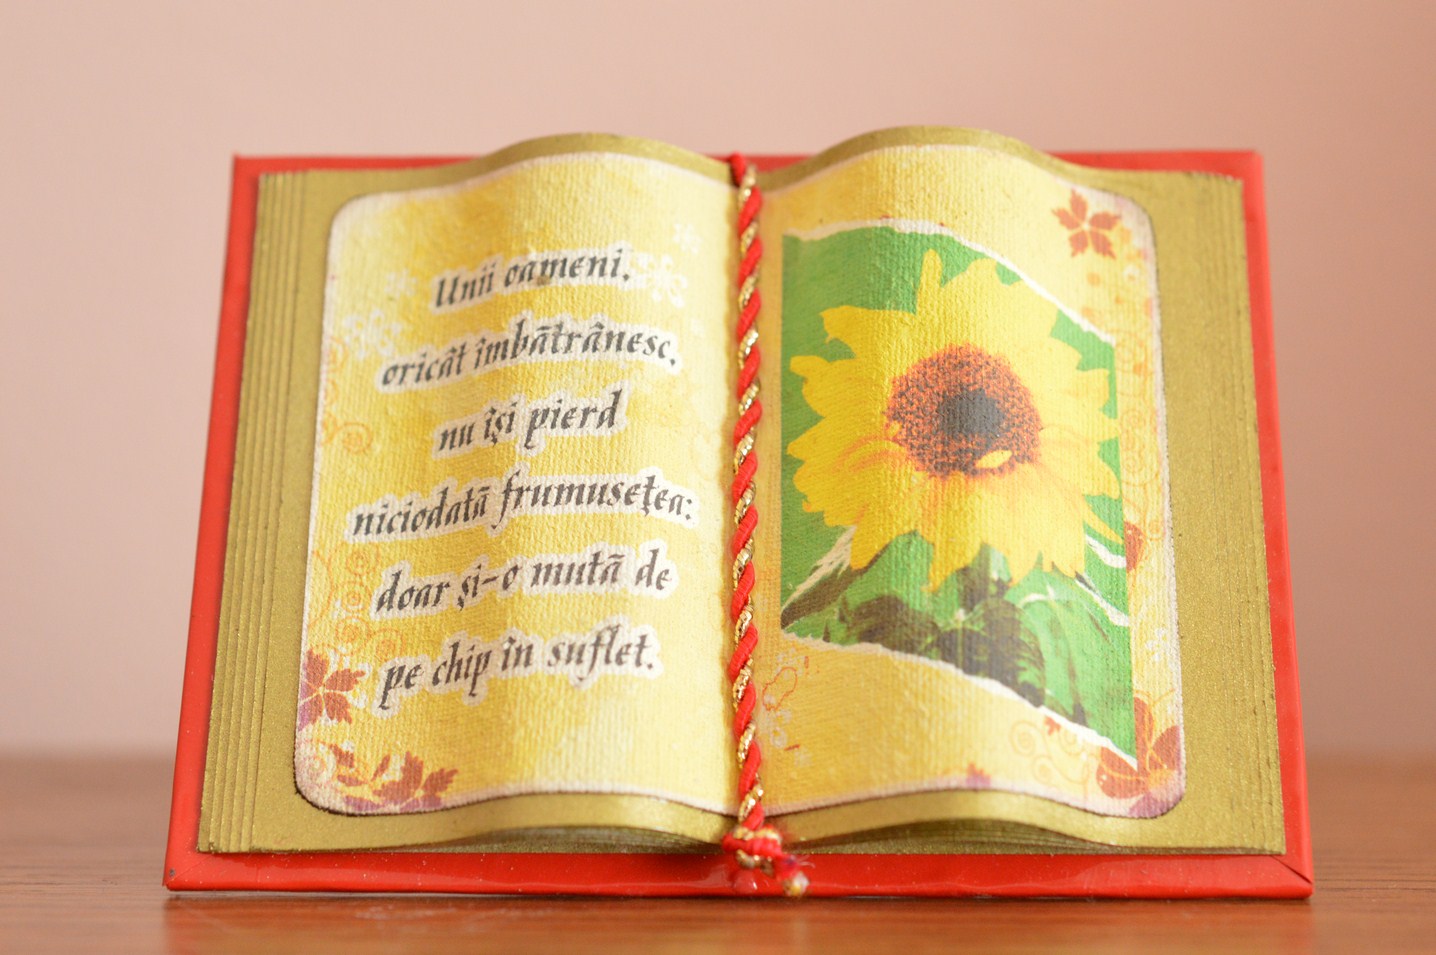 Unii oameni,
oricât îmbătrânesc,
nu îşi pierd
niciodată frumuseţea:
doar şi-o mută de
pe chip în suflet.